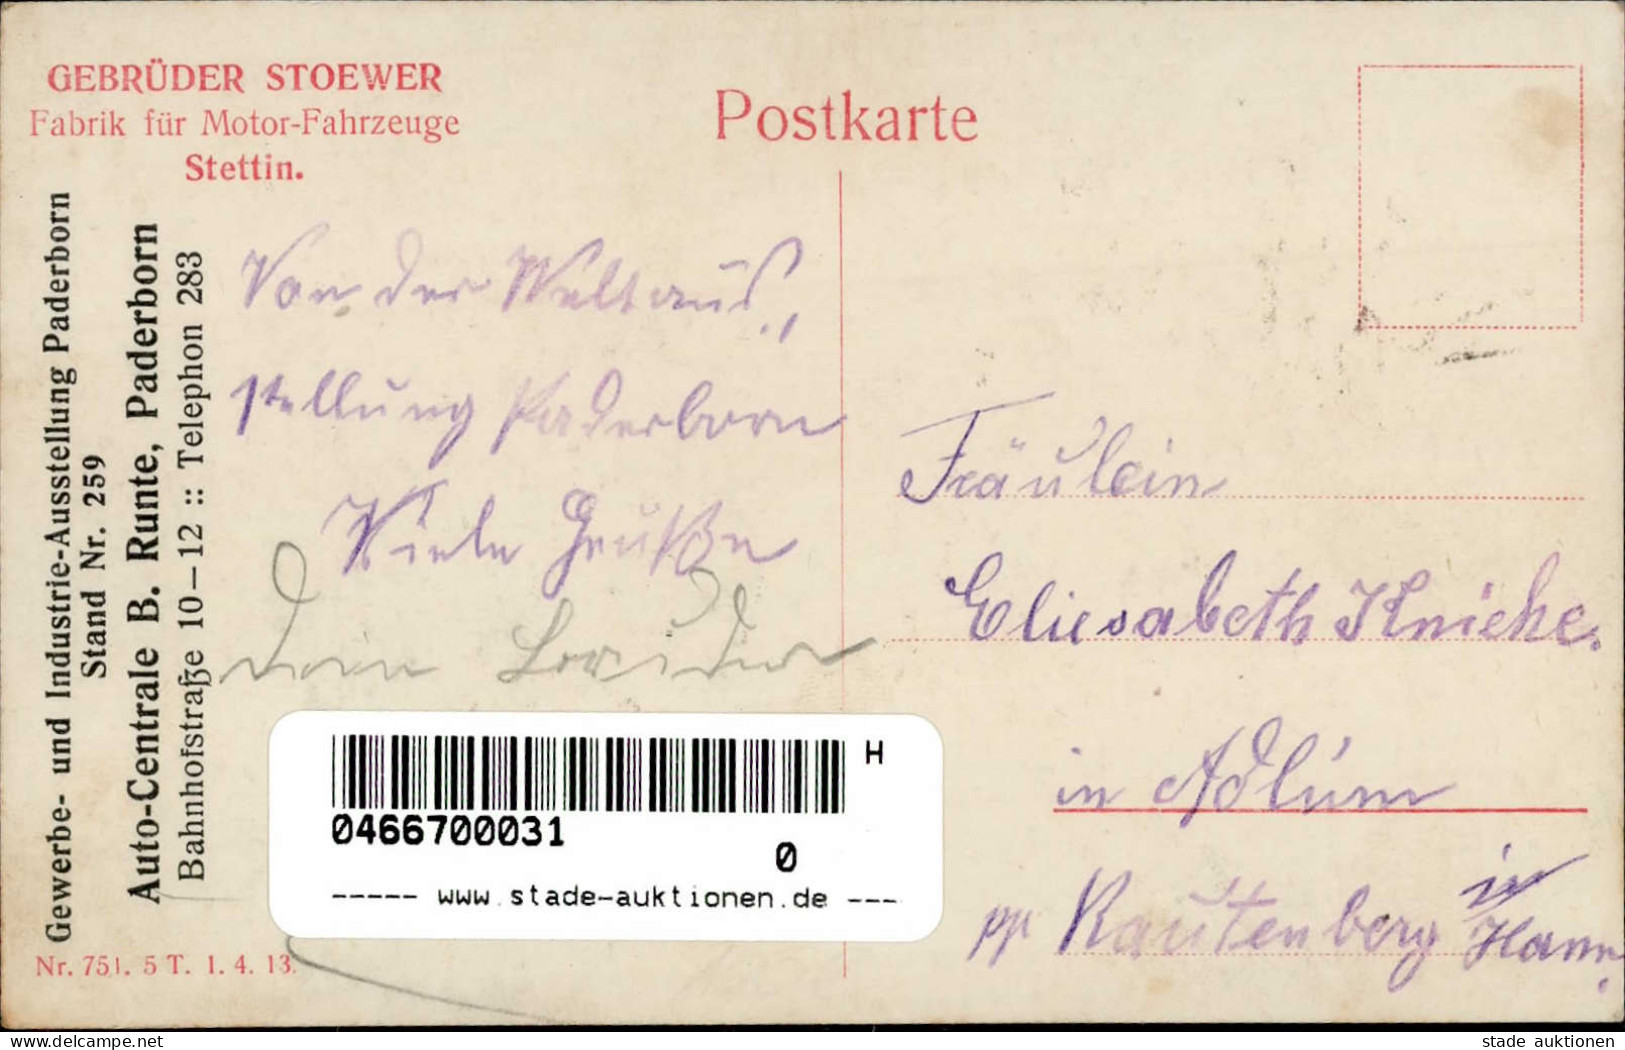 GEBRÜDER STOEWER
Fabrik für Motor-Fahrzeuge
Stettin.
Postkarte
Gewerbe- und Industrie-Ausstellung Paderborn
Stand Nr. 259
Auto-Centrale B. Runte, Paderborn
Bahnhofstraße 10–12 :: Telephon 283
Von der Weltaus,,
stellung Paderborn
Viele Grüße
Dein Bruder
Fräulein
Eliesabeth Knieke.
in Adlum
pp Rautenberg in Hann.
H
0466700031
0
----- www.stade-auktionen.de ---
Nr. 751. 5 T. 1. 4. 13.
www.delcampe.net
stade_auktionen